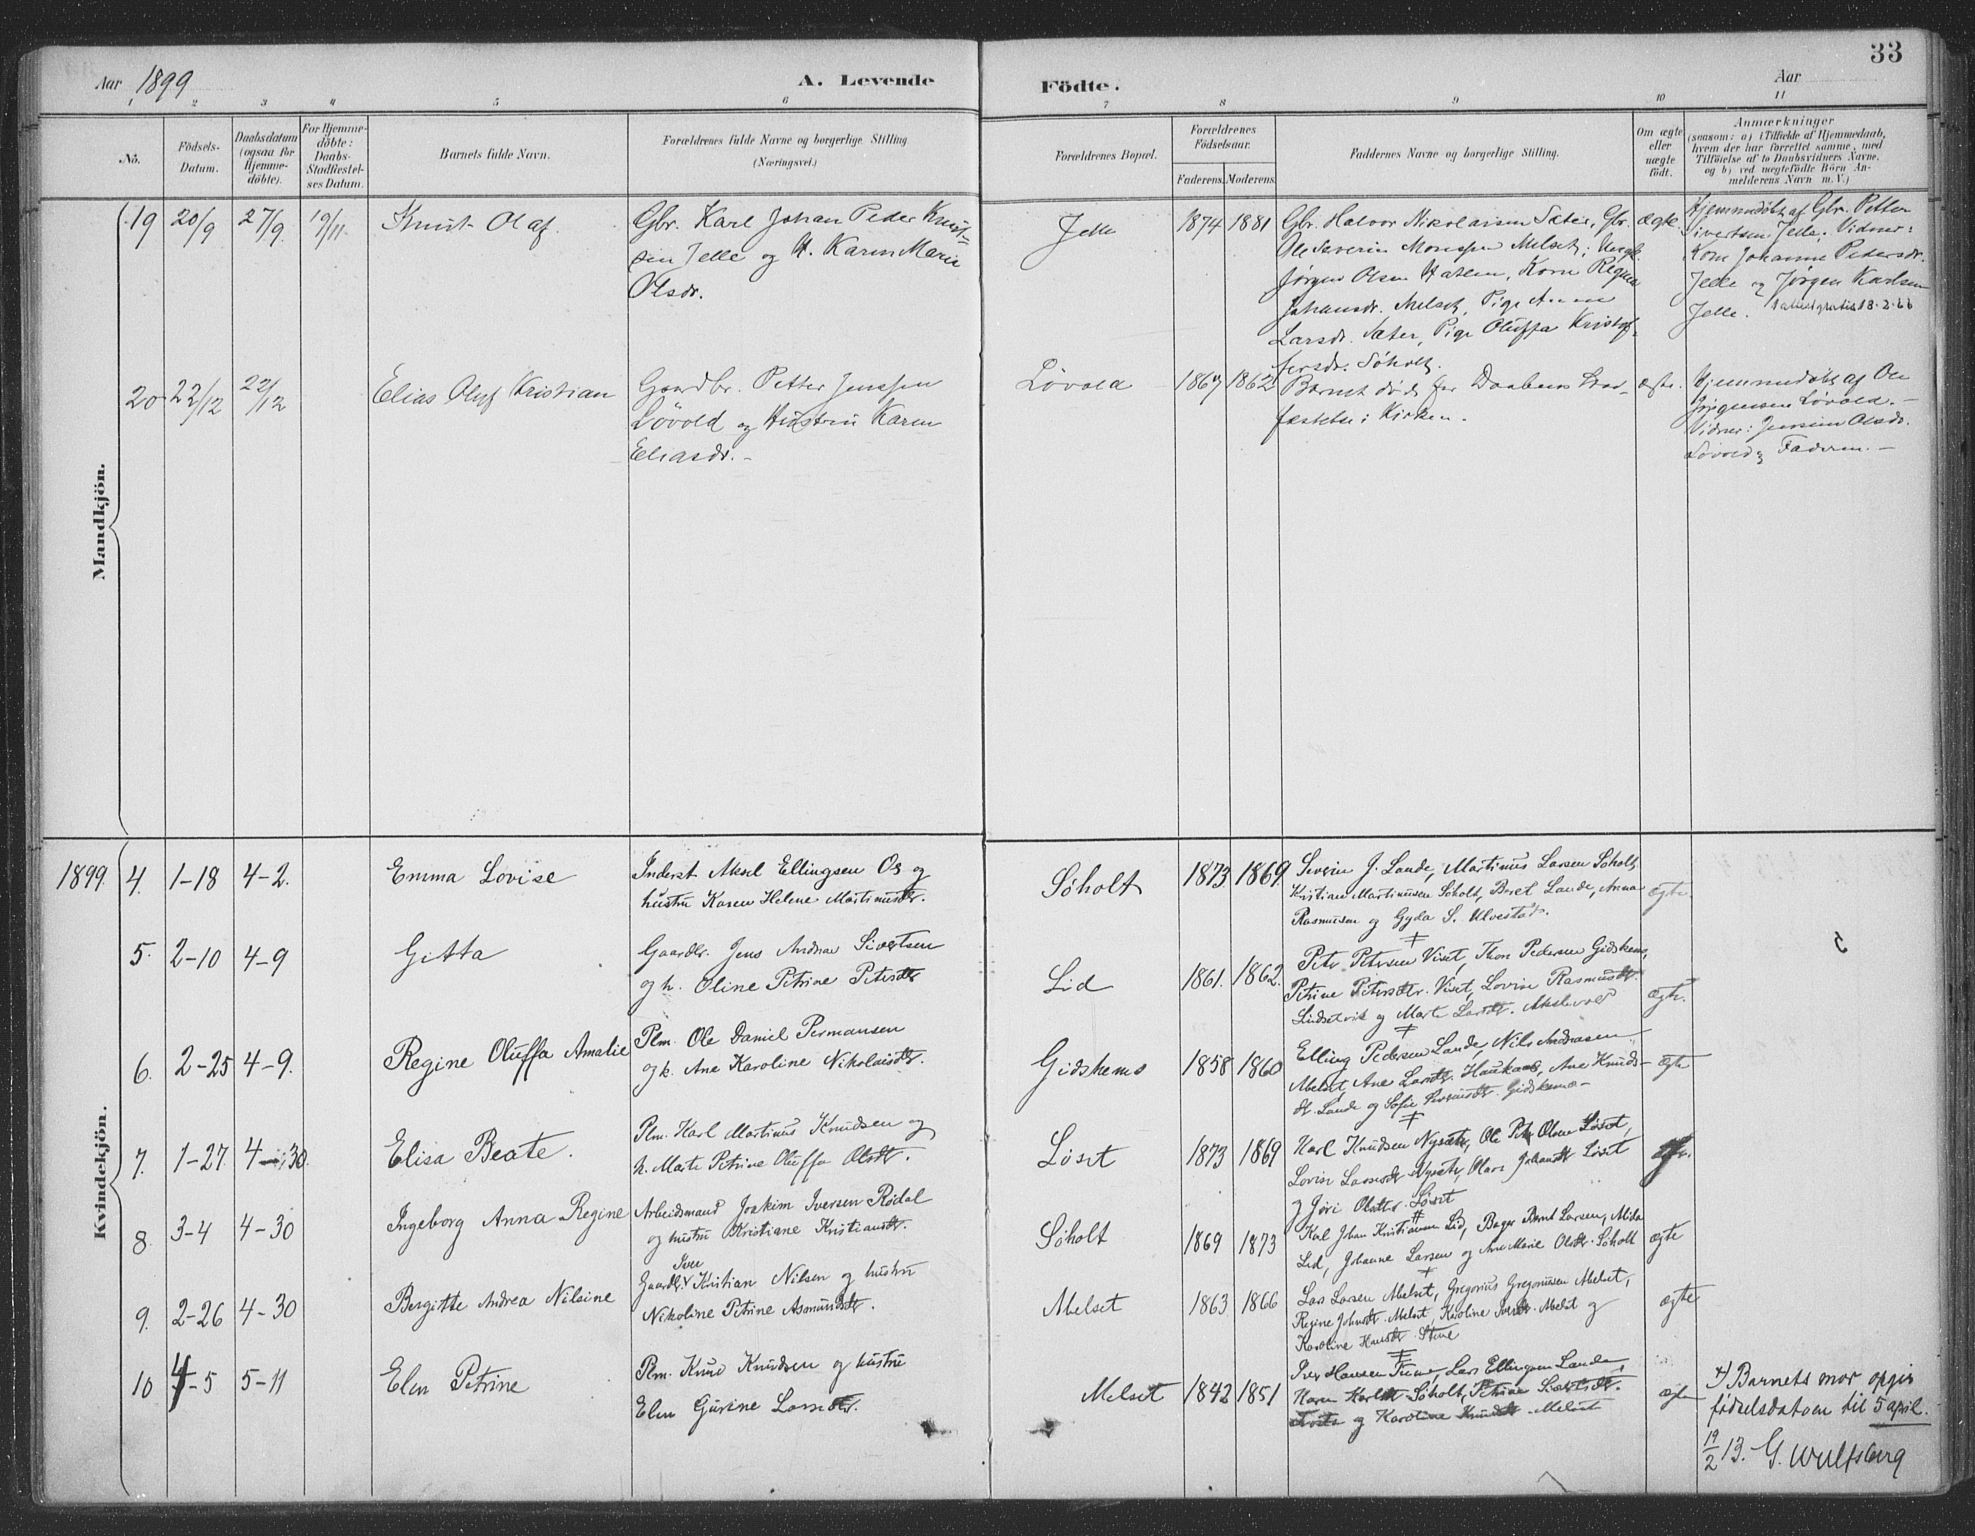 33
Aar 1899
A. Levende
Födte.
Aar
1 2 3 4 5 6 7 8 9 10 11
No.
Födsels-
Datum.
Daabsdatum
(ogsaa for
Hjemme-
döbte).
For Hjemme-
döbte:
Daabs-
Stadfæstel-
ses Datum.
Barnets fulde Navn.
Forældrenes fulde Navne og borgerlige Stilling
(Næringsvei.)
Forældrenes Bopæl.
Forældrenes
Födselsaar.
Faderens. Moderens.
Faddernes Navne og borgerlige Stilling.
Om ægte
eller
uægte
födt.
Anmærkninger
(saasom: a) i Tilfælde af Hjemmedaab,
hvem der har forrettet samme, med
Tilföielse af to Daabsvidners Navne,
og b) ved uægtefödte Börn An-
melderens Navn m. V.)
Mandkjön.
19 20/9 27/9 19/11
Knut Olaf.
Gbr. Karl Johan Peder Knut-
sen Jelle og H. Karen Marie
Olsdr.
Jelle
1874 1881
Gbr. Halvor Nikolaisen Sæter, Gbr.
Ole Severin Monssen Melset; Ungk.
Jørgen Olsen Hatlen, Kone Regine
Johansdr. Melset, Pige Anne
Larsdr. Sæter, Pige Oluffa Kristof-
fersdr. Søholt.
ægte.
Hjemmedøbt af Gbr. Petter
Sivertsen Jelle; Vidner:
Kone Johanne Pedersdr.
Jelle og Jørgen Karlsen
Jelle. 18.2.66
20 22/12 22/12
Elias Oluf Kristian
Gaardbr. Petter Jenssen
Løvold og Hustru Karen
Eliasdr. -
Løvold
1867 1862
Barnet døde før Daabens Stad-
fæstelse i Kirken.
ægte.
Hjemmedøbt af Ole
Jørgensen Løvold. -
Vidner: Olsdr.
Løvold og Faderen. -
Kvindekjön.
1899. 4. 1-18 4-2.
Emma Lovise
Inderst Aksel Ellingsen Os og
hustru Karen Helene Martinusdtr.
Søholt
1873 1869.
Severin J. Lande, Martinus Larsen Søholt,
Kristian Martinusen Søholt, Beret Lande, Anna
Rasmusen og Gyda S. Ulvestad.
ægte
5. 2-10 4-9
Gitta
Gaardbr. Jens Andreas Sivertsen
og h. Oline Petrine Petersdtr
Lid
1861. 1862.
Peter Petersen Viset, Thore Pedersen Gidskems,
Petrine Petersdtr. Viset, Lovise Rasmusdtr.
Lindsetvik og Marte Larsdtr.
ægte.
6. 2-25 4-9.
Regine Oluffa Amalie
Plm. Ole Daniel Permansen
og h. Ane Karoline Nikolaisdtr.
Gidskems
1858 1860
Elling Pedersen Lande, Nils Andreasen
Melset, Ane Larsdtr. Haukaas, Ane Knuds-
dt. Lande og Sofie Gidskems -
ægte
7. 1-27. 4-30.
Elisa Beate.
Plm. Karl Martinus Knudsen og
h. Marte Petrine Oluffa Olsdtr.
Løset
1873 1869
Karl Knudsen Nysæter, Ole Peter Olsen Løset,
Lovise Larsdtr Nysæter, Johansdtr Løset
og Jøri Olsdtter Løset
8. 3-4 4-30
Ingeborg Anna Regine
Arbeidsmand Joakim Iversen Rødal
og hustru Kristiane Kristiansdtr.
Søholt
1869 1873
Karl Johan Kristiansen Lid, Bager Bernt Larsen,
Lid, Johanne Larsen og Ane Marie Olsdtr. Søholt
ægte
9. 2-26 4-30
Bergitte Andrea Nilsine
Iver
Gaardbr. Kristian Nilsen og hustru
Nikoline Petrine Asmundsdtr.
Melset
1863 1866
Lars Larsen Melset, Gregorius Gregoriusen Melset,
Regine Johnsdtr. Melset, Karoline Iversdtr. Melset og
Karoline Hansdtr. Stene
ægte
10 4-5 5-11
Elen Petrine
Plm. Knud Knudsen og hustru
Elen Gurine Larsdtr.
Melset
1842 1851
Iver Hansen Lars Ellingsen Lande,
Karen Karlsdtr. Søholt, Petrine Sivertsdtr.
og Karoline Knudsdtr. Melset
ægte
x) Barnets mor opgir
fødselsdatoen til 5 april.
19/2 13. G. Wulfsberg